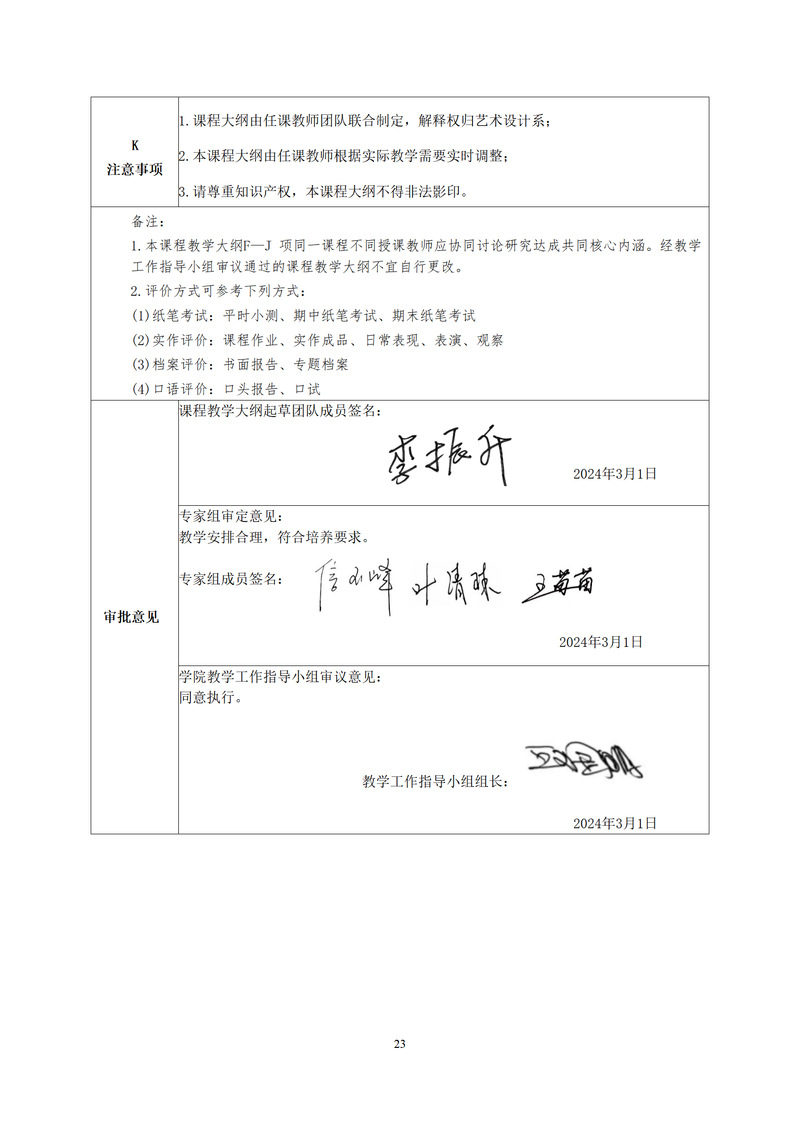 K
注意事项
1.课程大纲由任课教师团队联合制定，解释权归艺术设计系；
2.本课程大纲由任课教师根据实际教学需要实时调整；
3.请尊重知识产权，本课程大纲不得非法影印。
备注：
1.本课程教学大纲F—J 项同一课程不同授课教师应协同讨论研究达成共同核心内涵。经教学
工作指导小组审议通过的课程教学大纲不宜自行更改。
2.评价方式可参考下列方式：
(1)纸笔考试：平时小测、期中纸笔考试、期末纸笔考试
(2)实作评价：课程作业、实作成品、日常表现、表演、观察
(3)档案评价：书面报告、专题档案
(4)口语评价：口头报告、口试
审批意见
课程教学大纲起草团队成员签名：
李振升
2024年3月1日
专家组审定意见：
教学安排合理，符合培养要求。
专家组成员签名： 信玉峰 叶清珠 王苗苗
2024年3月1日
学院教学工作指导小组审议意见：
同意执行。
教学工作指导小组组长：
2024年3月1日
23